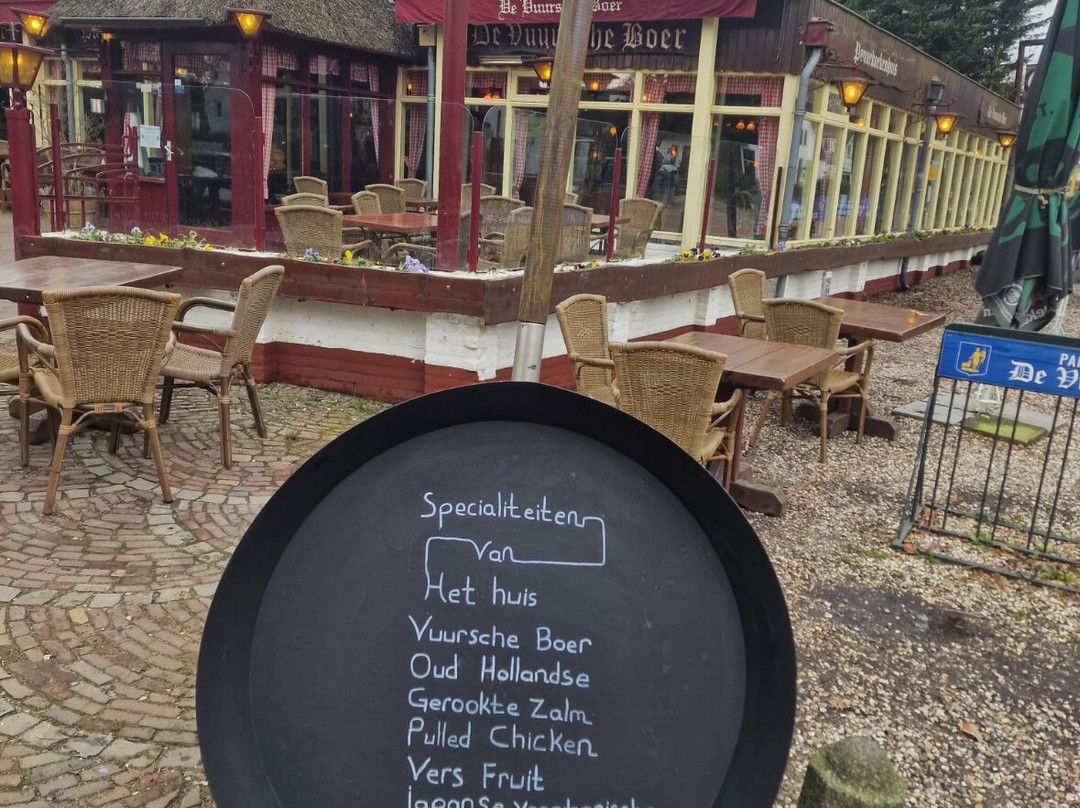 De Vuursche Boer
De Vuursche Boer
Pannekoekenhuis
PA
De V
Specialiteiten
van
Het huis
Vuursche Boer
Oud Hollandse
Gerookte Zalm
Pulled Chicken
Vers Fruit
Japanse